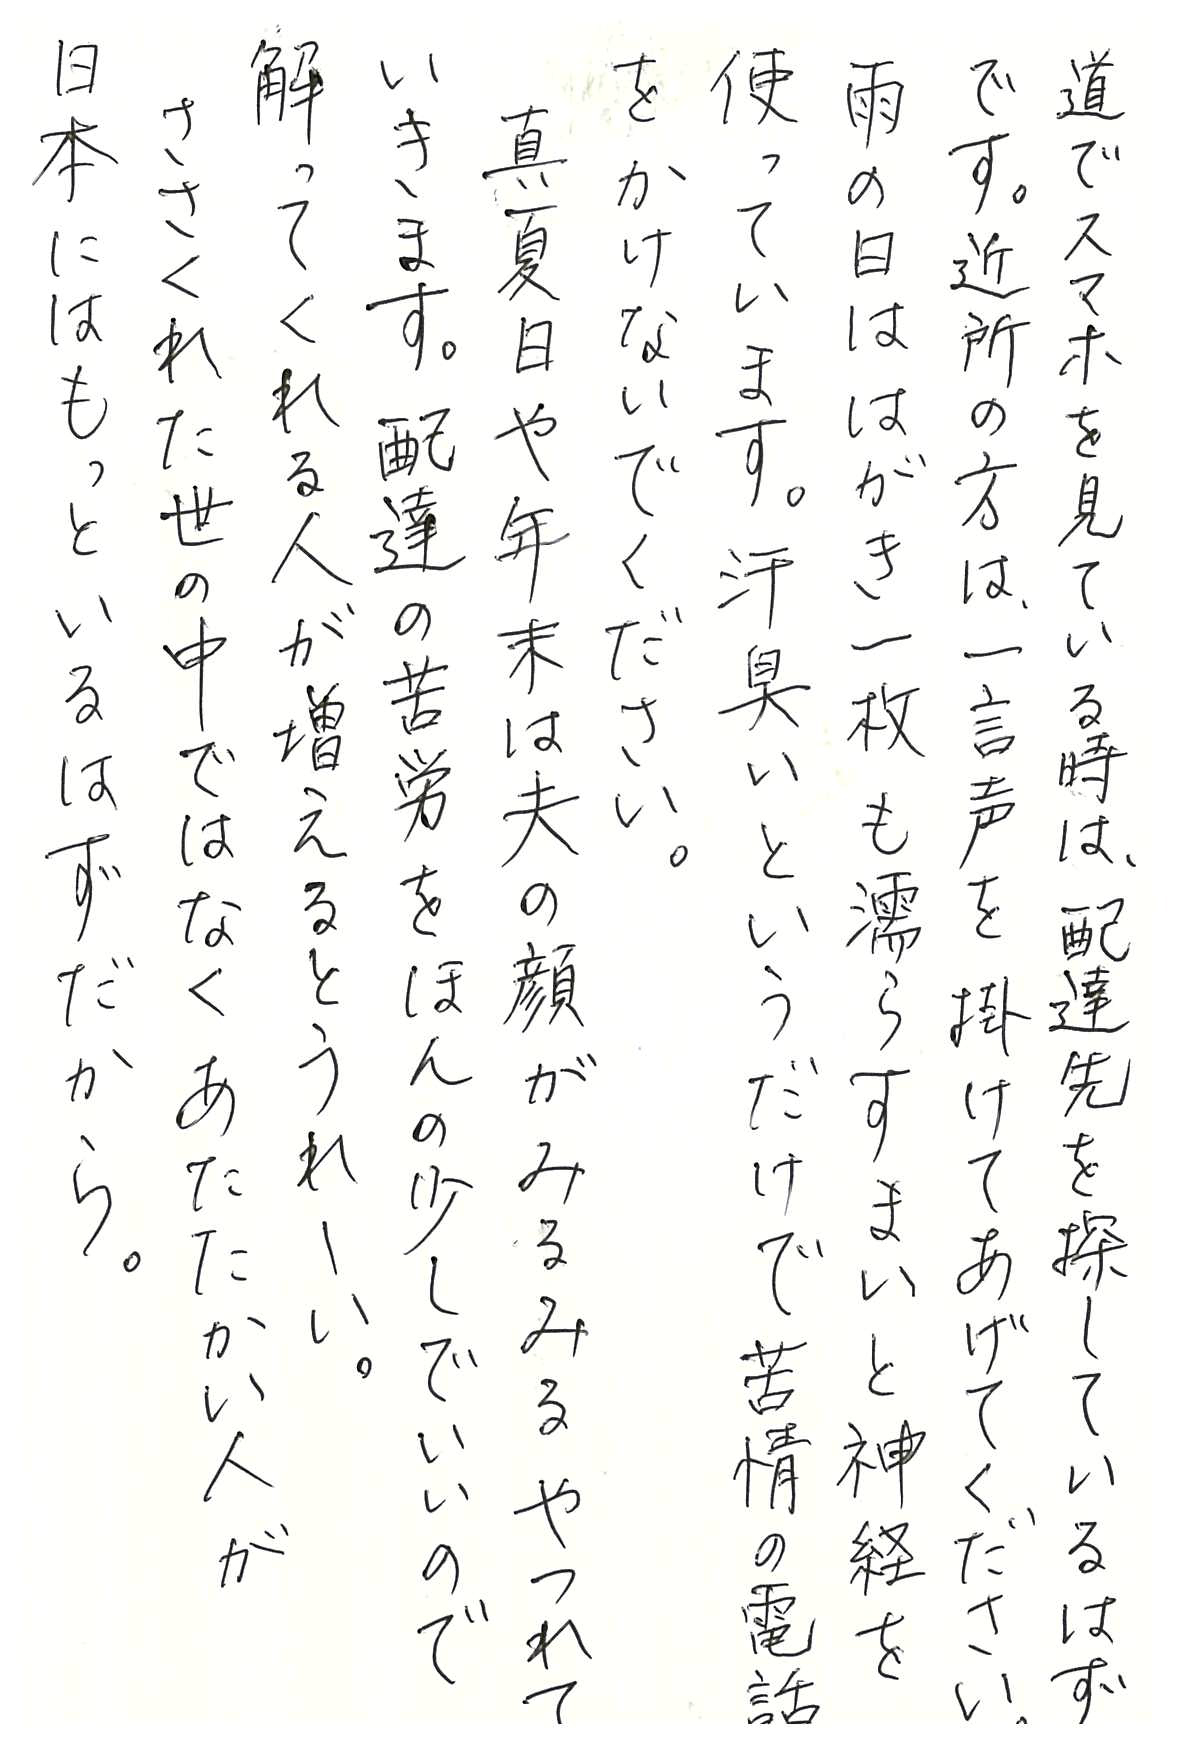 道でスマホを見ている時は、配達先を探しているはず
です。近所の方は、一言声を掛けてあげてください。
雨の日ははがき一枚も濡らすまいと神経を
使っています。汗臭いというだけで苦情の電話
をかけないでください。
真夏日や年末は夫の顔がみるみるやつれて
いきます。配達の苦労をほんの少しでいいので
解ってくれる人が増えるとうれしい。
ささくれた世の中ではなくあたたかい人が
日本にはもっといるはずだから。